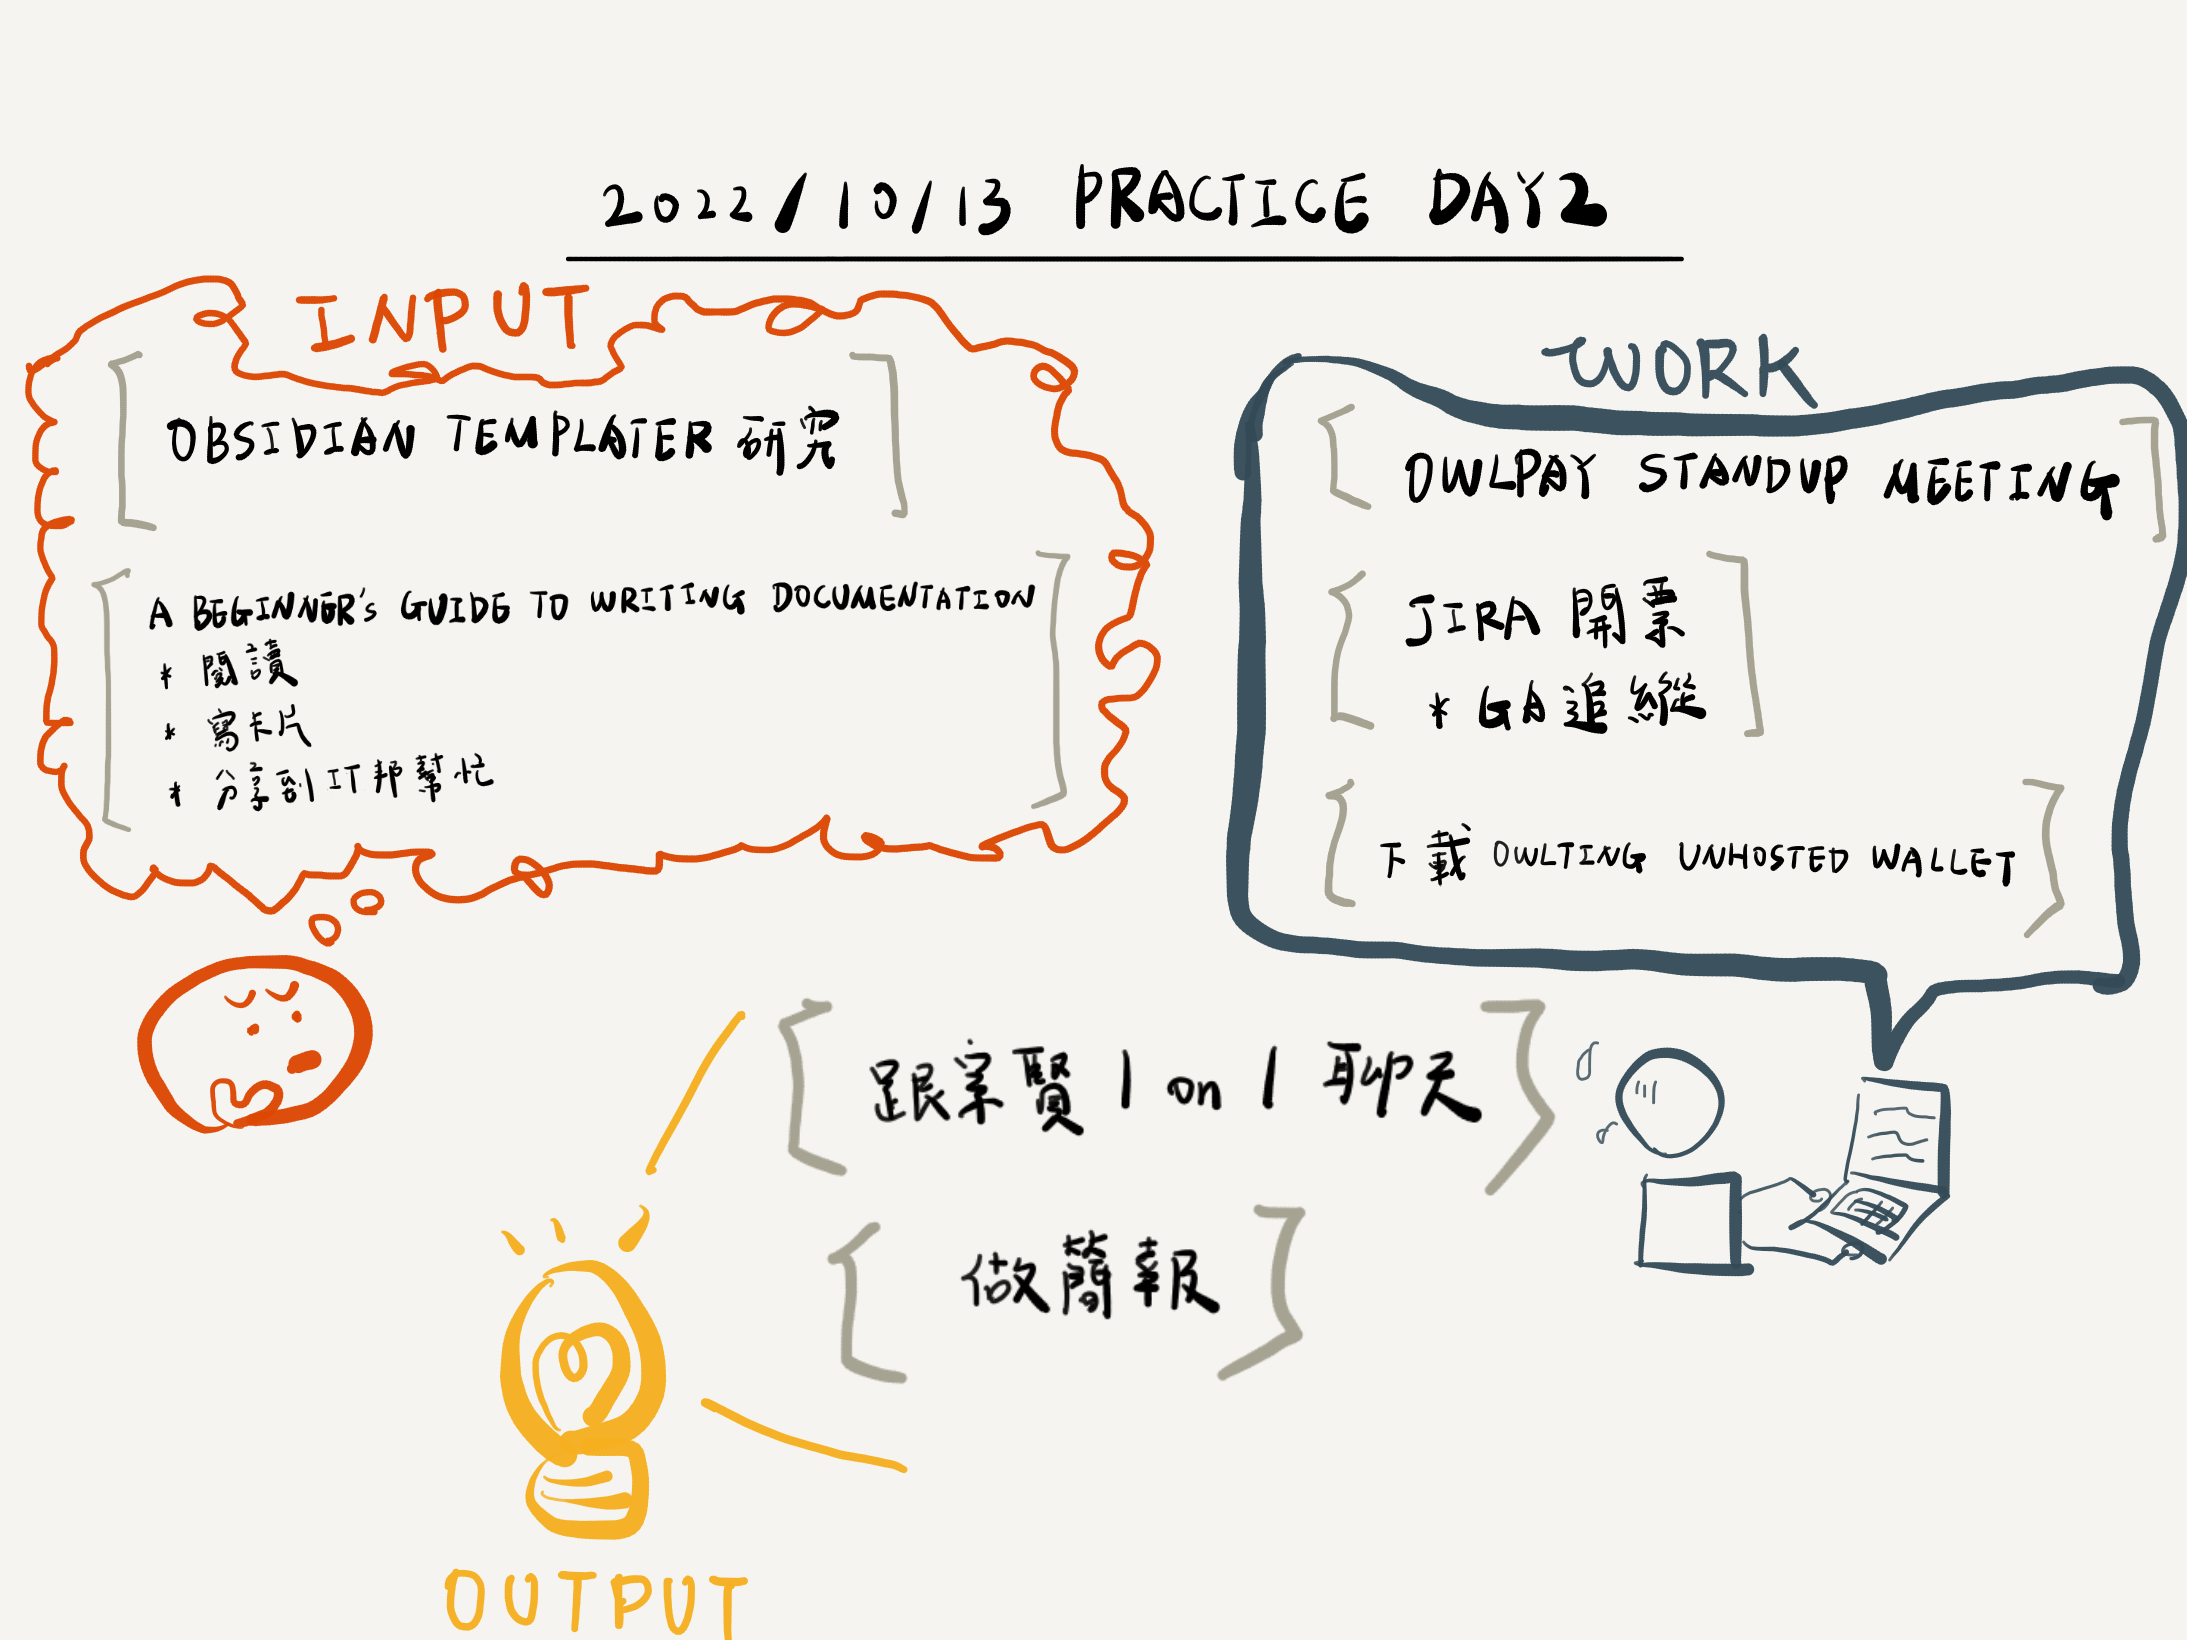 2022/10/13 PRACTICE DAY2
INPUT
OBSIDIAN TEMPLATER 研究
A BEGINNER'S GUIDE TO WRITING DOCUMENTATION
* 閱讀
* 寫卡片
* 分享到IT邦幫忙
WORK
OWLPAY STANDUP MEETING
JIRA 開票
* GA追縱
下載 OWLTING UNHOSTED WALLET
跟宗賢 1 on 1 聊天
做簡報
OUTPUT